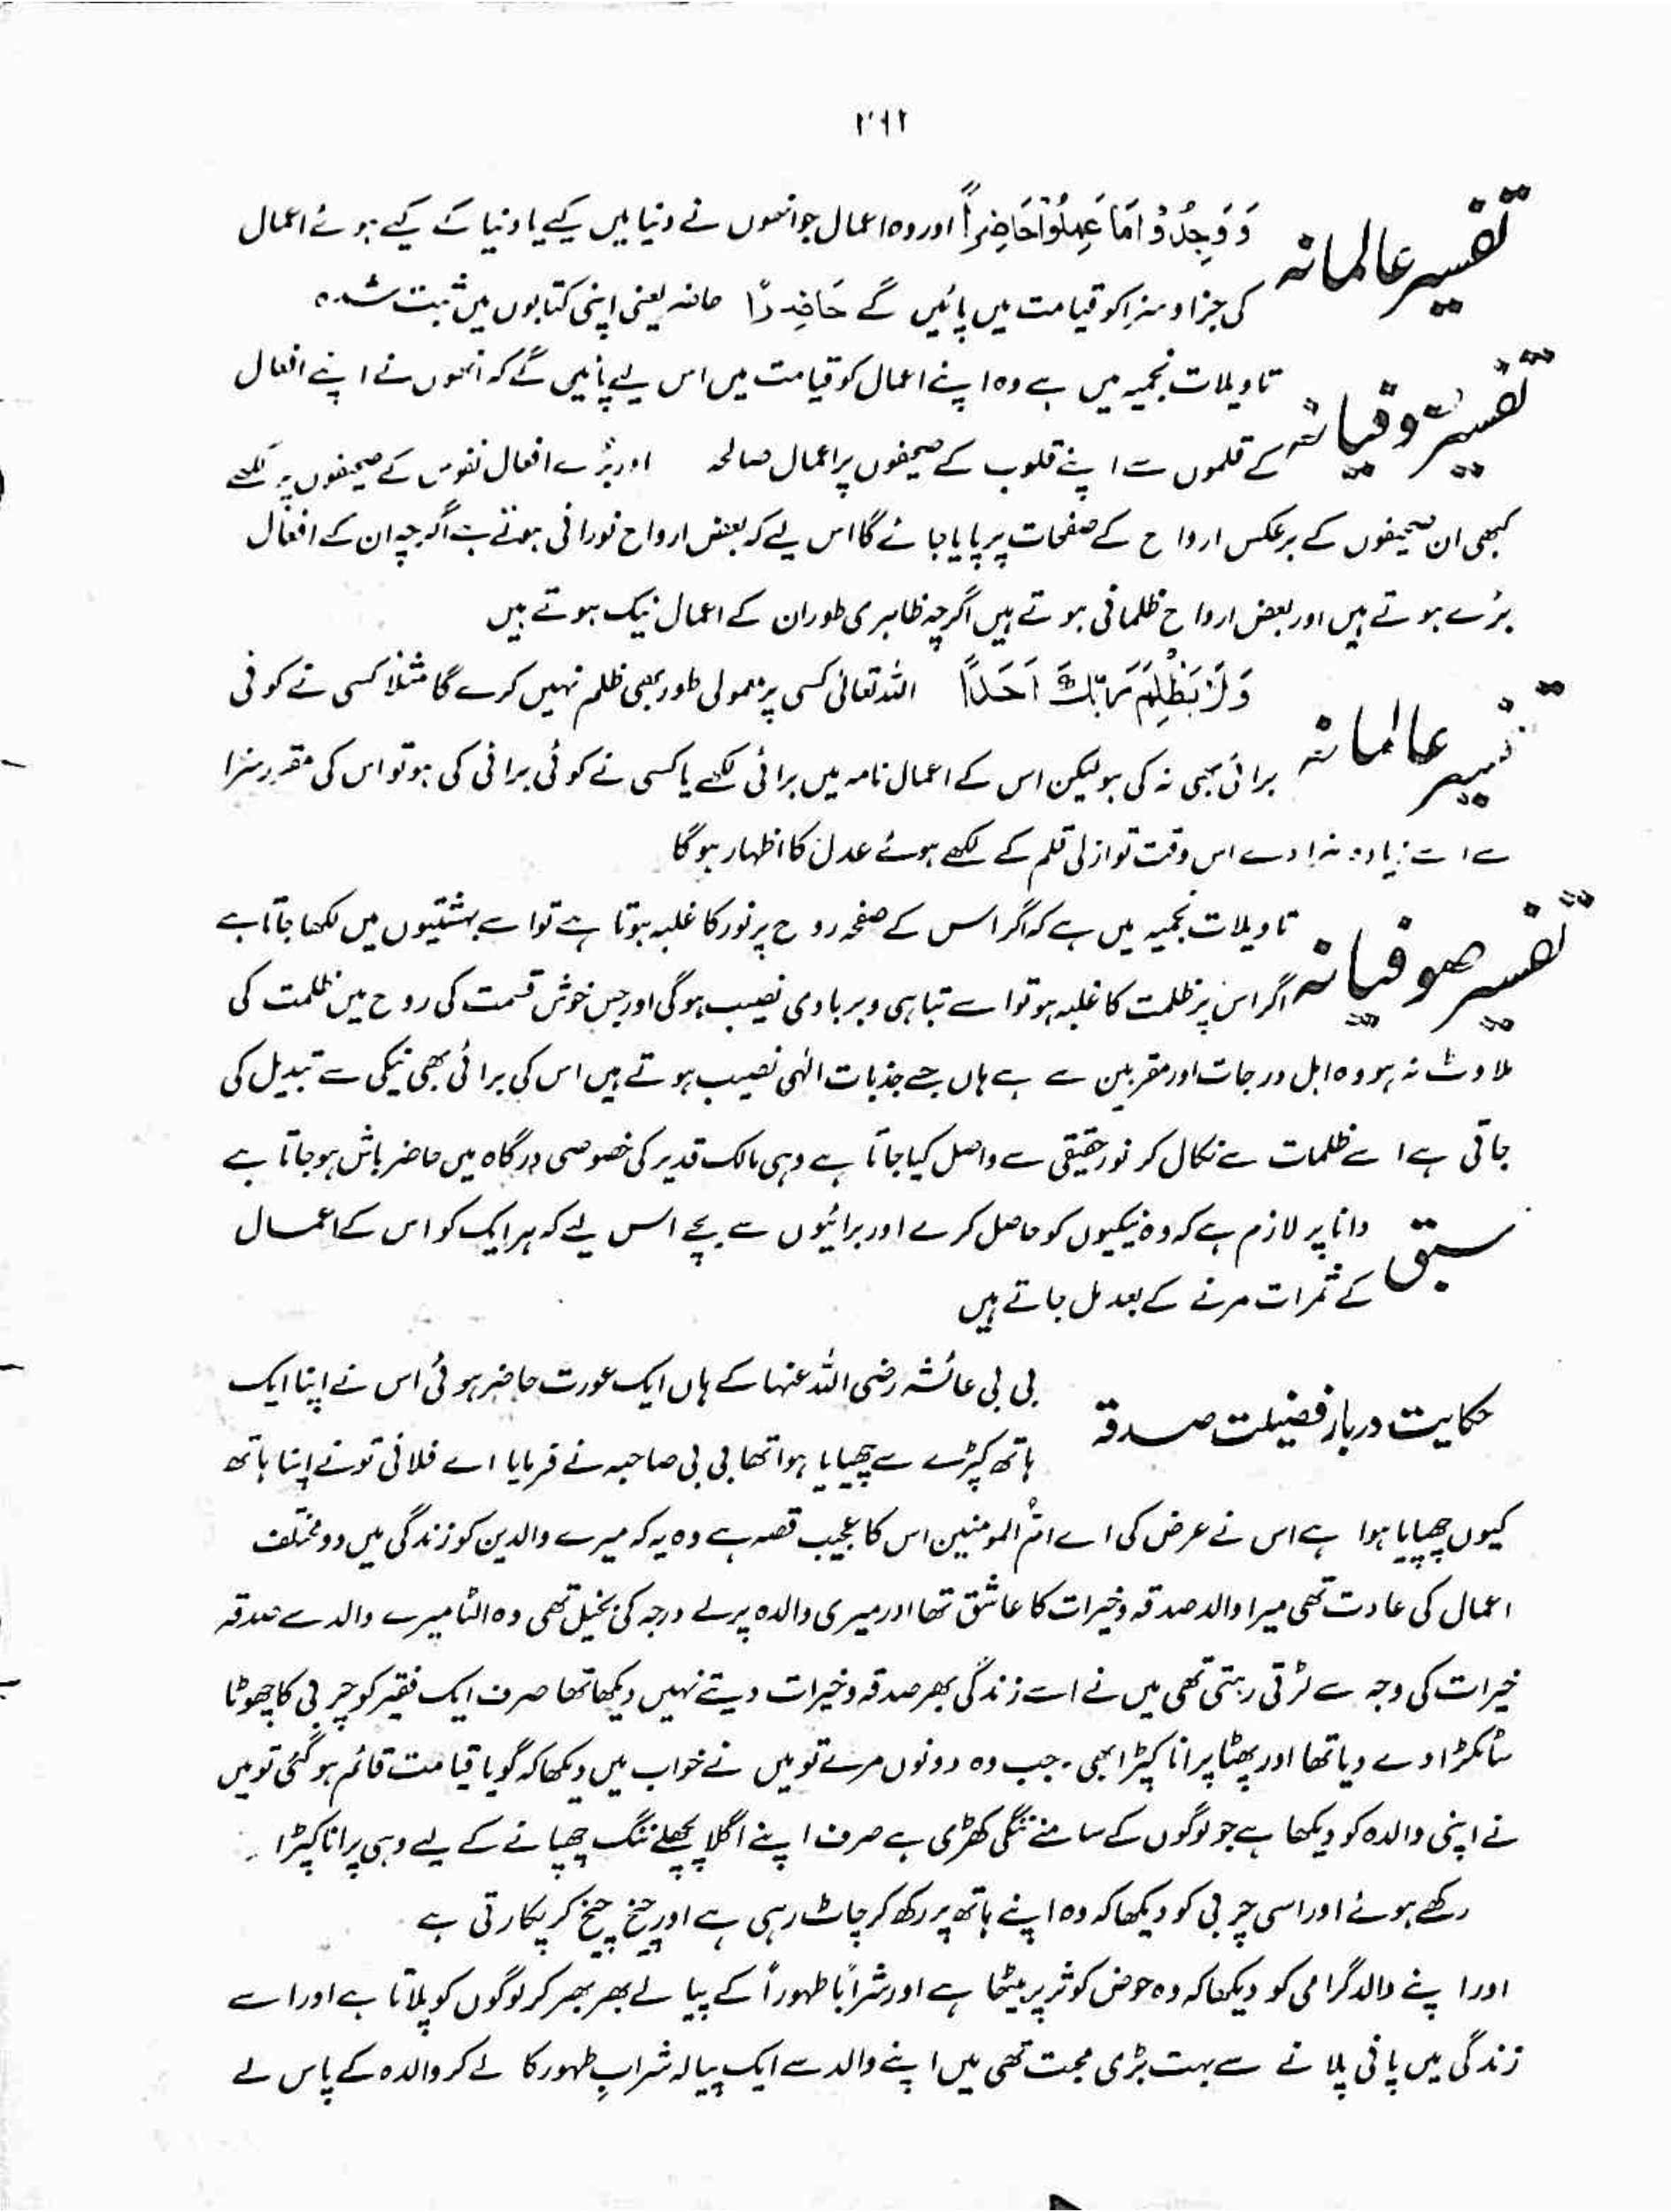 تفسیر عالمانہ
وَوَجَدُوْا مَا عَمِلُوْا حَاضِرًا اور وہ اعمال جو انھوں نے دنیا میں کیے یا دنیا کے کیے ہوئے اعمال
کی جزا و سزا کو قیامت میں پائیں گے حَاضِرًا حاضر یعنی اپنی کتابوں میں ثبت شدہ
تفسیر صوفیانہ
تاویلات نجمیہ میں ہے وہ اپنے اعمال کو قیامت میں اس لیے پائیں گے کہ انھوں نے اپنے افعال
کے قلموں سے اپنے قلوب کے صحیفوں پر اعمال صالحہ اور برے افعال نفوس کے صحیفوں پر لکھے
کبھی ان صحیفوں کے برعکس ارواح کے صفحات پر پایا جائے گا اس لیے کہ بعض ارواح نورانی ہوتے ہے اگرچہ ان کے افعال
برے ہوتے ہیں اور بعض ارواح ظلمانی ہوتے ہیں اگرچہ ظاہری طور ان کے اعمال نیک ہوتے ہیں
تفسیر عالمانہ
وَلَا يَظْلِمُ رَبُّكَ اَحَدًا اللہ تعالیٰ کسی پر معمولی طور بھی ظلم نہیں کرے گا مثلاً کسی نے کوئی
برائی بھی نہ کی ہو لیکن اس کے اعمال نامہ میں برائی لکھے یا کسی نے کوئی برائی کی ہو تو اس کی مقرر سزا
سے اسے زیادہ سزا دے اس وقت تو ازلی قلم کے لکھے ہوئے عدل کا اظہار ہو گا
تفسیر صوفیانہ
تاویلات نجمیہ میں ہے کہ اگر اس کے صفحہ روح پر نور کا غلبہ ہوتا ہے تو اسے بہشتیوں میں لکھا جاتا ہے
اگر اس پر ظلمت کا غلبہ ہو تو اسے تباہی و بربادی نصیب ہو گی اور جس خوش قسمت کی روح میں ظلمت کی
ملاوٹ نہ ہو وہ اہل درجات اور مقربین سے ہے ہاں جسے جذبات الٰہی نصیب ہوتے ہیں اس کی برائی بھی نیکی سے تبدیل کی
جاتی ہے اسے ظلمات سے نکال کر نور حقیقی سے واصل کیا جاتا ہے وہی مالک قدیر کی خصوصی درگاہ میں حاضر باش ہو جاتا ہے
سبق
دانا پر لازم ہے کہ وہ نیکیوں کو حاصل کرے اور برائیوں سے بچے اس لیے کہ ہر ایک کو اس کے اعمال
کے ثمرات مرنے کے بعد مل جاتے ہیں
حکایت دربارۂ فضیلت صدقہ
بی بی عائشہ رضی اللہ عنہا کے ہاں ایک عورت حاضر ہوئی اس نے اپنا ایک
ہاتھ کپڑے سے چھپایا ہوا تھا بی بی صاحبہ نے فرمایا اے فلانی تو نے اپنا ہاتھ
کیوں چھپایا ہوا ہے اس نے عرض کی اے ام المومنین اس کا عجیب قصہ ہے وہ یہ کہ میرے والدین کو زندگی میں دو مختلف
اعمال کی عادت تھی میرا والد صدقہ و خیرات کا عاشق تھا اور میری والدہ پرلے درجہ کی بخیل تھی وہ الٹا میرے والد سے صدقہ
خیرات کی وجہ سے لڑتی رہتی تھی میں نے اسے زندگی بھر صدقہ و خیرات دیتے نہیں دیکھا تھا صرف ایک فقیر کو چربی کا چھوٹا
سا ٹکڑا دے دیا تھا اور پھٹا پرانا کپڑا بھی۔ جب وہ دونوں مرے تو میں نے خواب میں دیکھا کہ گویا قیامت قائم ہو گئی تو میں
نے اپنی والدہ کو دیکھا ہے جو لوگوں کے سامنے ننگی کھڑی ہے صرف اپنے اگلا پچھلے ننگ چھپانے کے لیے وہی پرانا کپڑا
رکھے ہوئے اور اسی چربی کو دیکھا کہ وہ اپنے ہاتھ پر رکھ کر چاٹ رہی ہے اور چیخ چیخ کر پکارتی ہے
اور اپنے والد گرامی کو دیکھا کہ وہ حوض کوثر پر بیٹھا ہے اور شراباً طہوراً کے پیالے بھر بھر کر لوگوں کو پلاتا ہے اور اسے
زندگی میں پانی پلانے سے بہت بڑی محبت تھی میں اپنے والد سے ایک پیالہ شرابِ طہور کا لے کر والدہ کے پاس لے